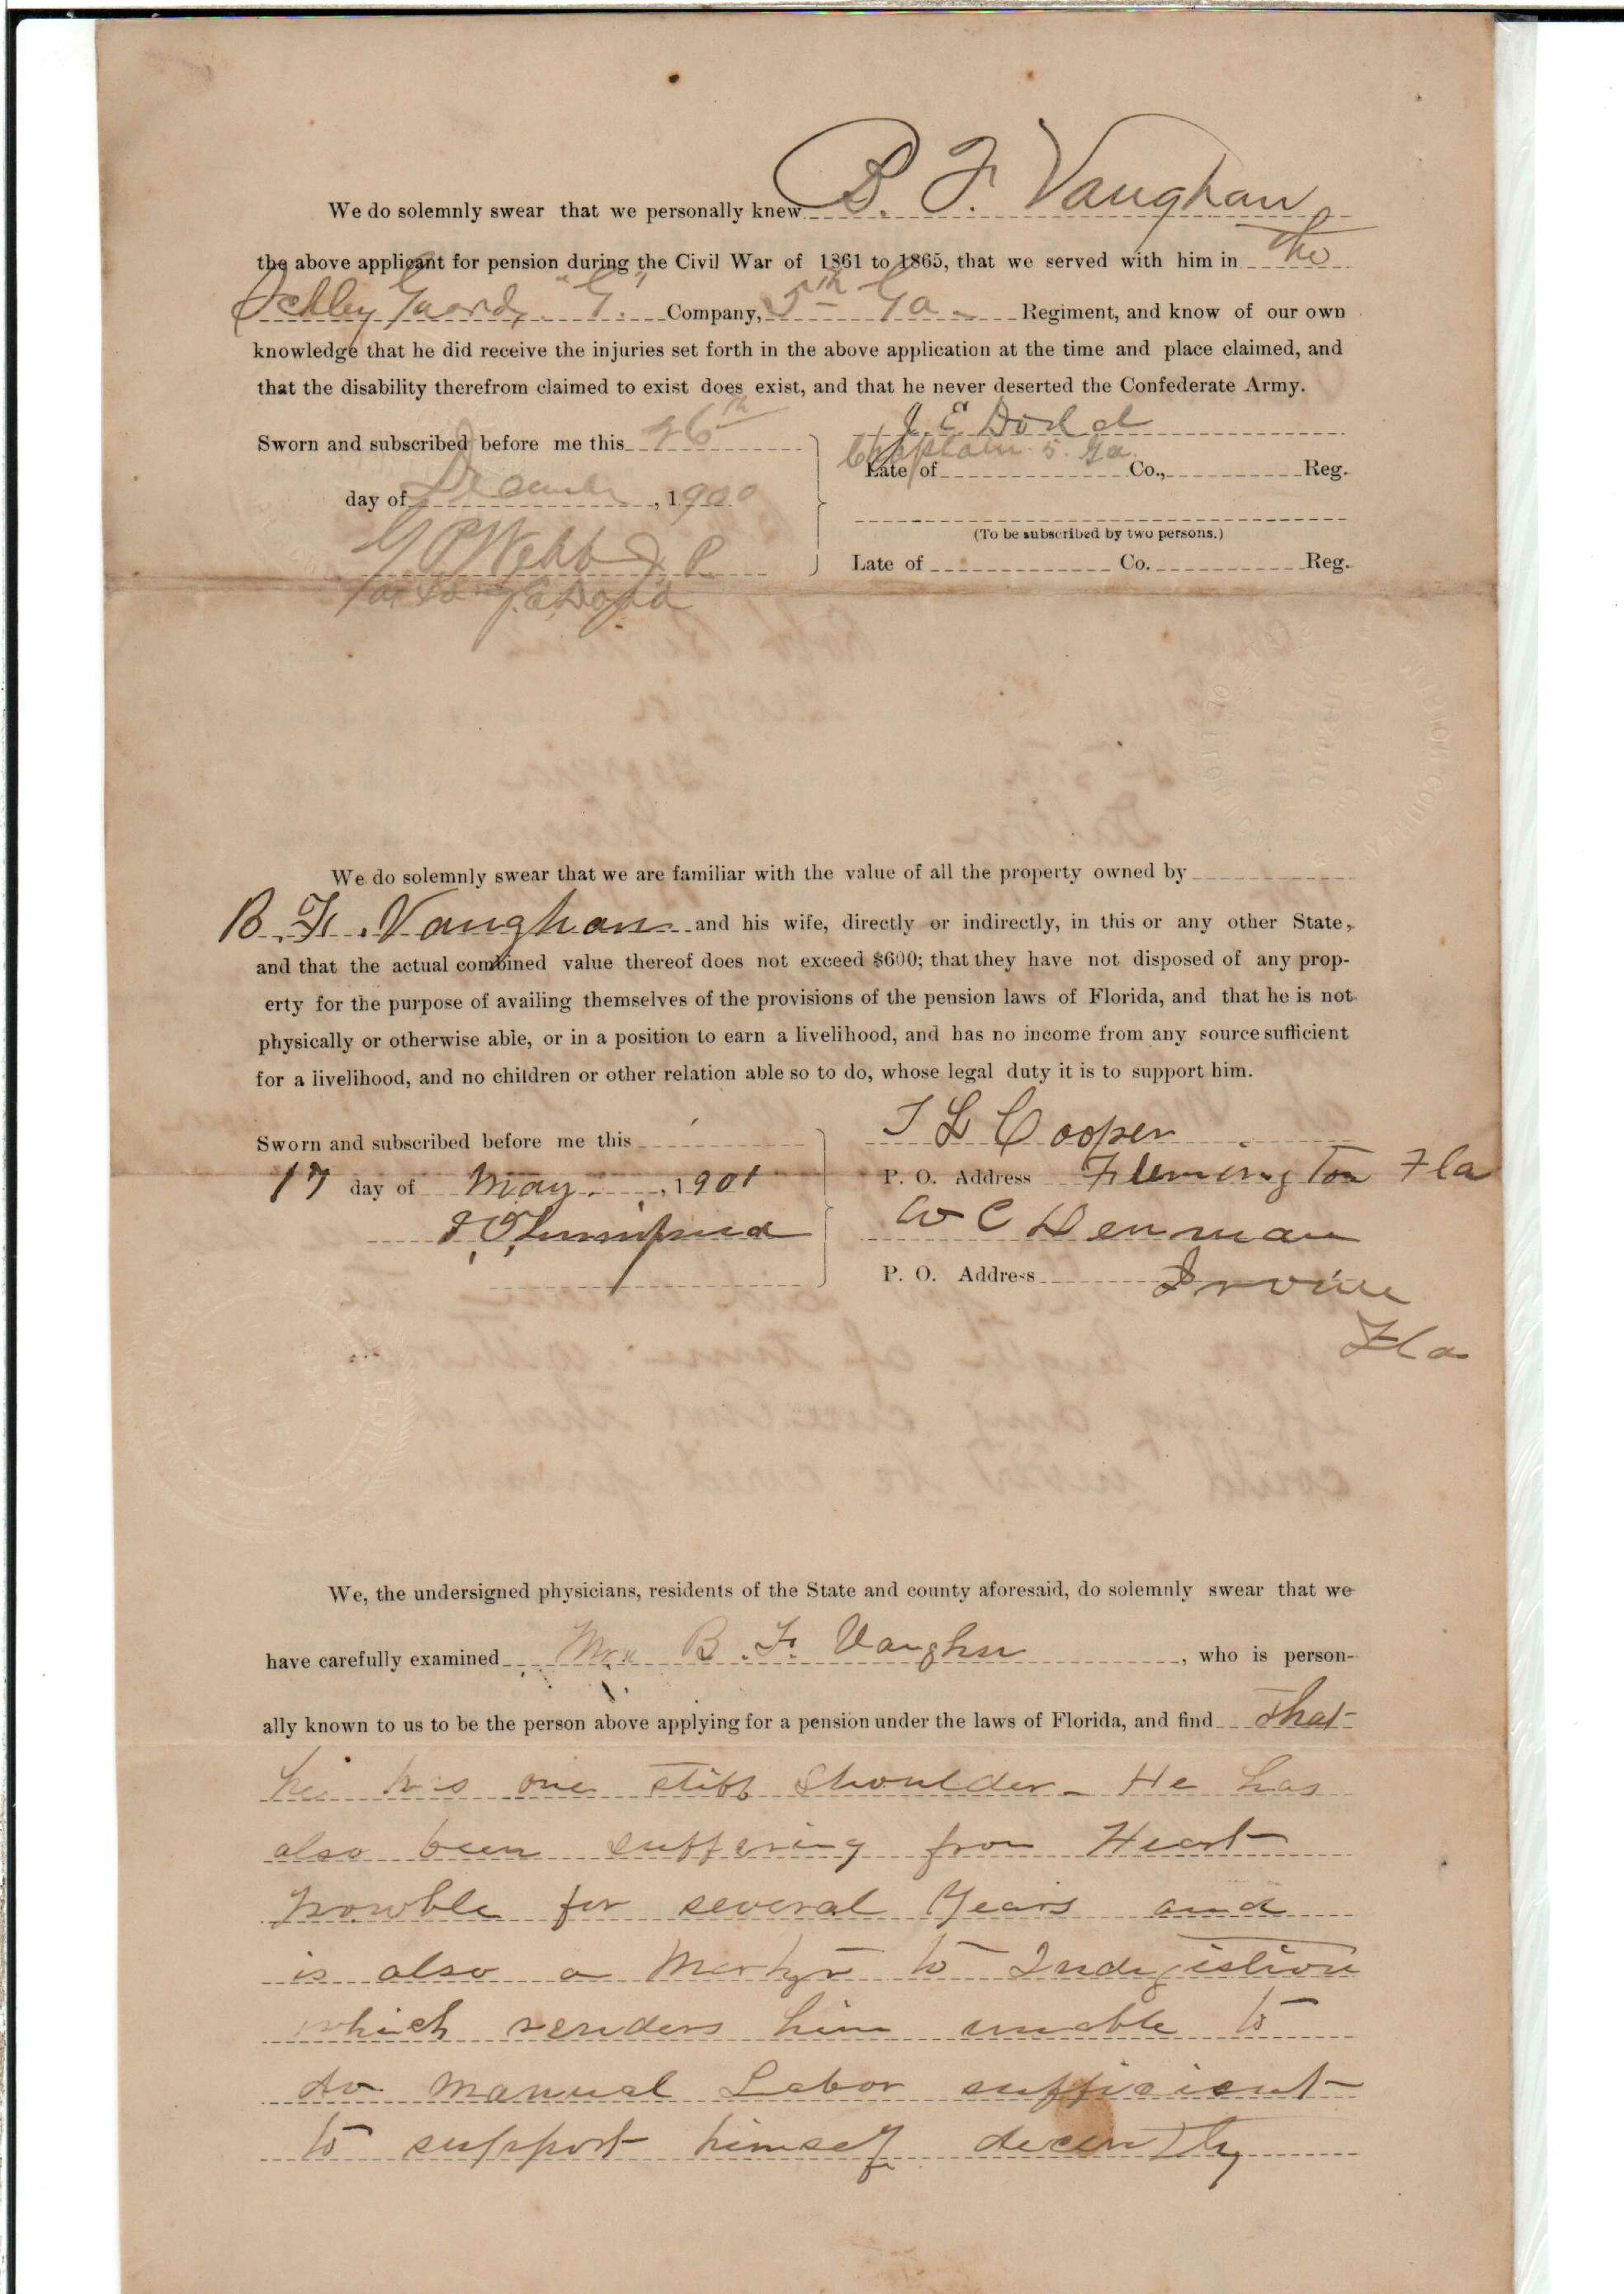 We do solemnly swear that we personally knew B. F. Vaughan
the above applicant for pension during the Civil War of 1861 to 1865, that we served with him in the
Schley Guards "G." Company, 5th Ga Regiment, and know of our own
knowledge that he did receive the injuries set forth in the above application at the time and place claimed, and
that the disability therefrom claimed to exist does exist, and that he never deserted the Confederate Army.
Sworn and subscribed before me this 26th
day of December, 1900
G P Webb J. P.
J. E. Dodd
Chaplain 5. Ga.
Late of Co., Reg.
(To be subscribed by two persons.)
Late of Co. Reg.
We do solemnly swear that we are familiar with the value of all the property owned by
B. F. Vaughan and his wife, directly or indirectly, in this or any other State,
and that the actual combined value thereof does not exceed $600; that they have not disposed of any prop-
erty for the purpose of availing themselves of the provisions of the pension laws of Florida, and that he is not
physically or otherwise able, or in a position to earn a livelihood, and has no income from any source sufficient
for a livelihood, and no children or other relation able so to do, whose legal duty it is to support him.
Sworn and subscribed before me this
17 day of May, 1901
T L Cooper
P. O. Address Flemington Fla
W C Denman
P. O. Address Irvine
Fla
We, the undersigned physicians, residents of the State and county aforesaid, do solemnly swear that we
have carefully examined Mr. B. F. Vaughn, who is person-
ally known to us to be the person above applying for a pension under the laws of Florida, and find That
he has one stiff Shoulder - He has
also been suffering from Heart
trowble for several Years and
is also a Martyr to Indigistion
which renders him unable to
do manual Labor sufficient
to support himself decently